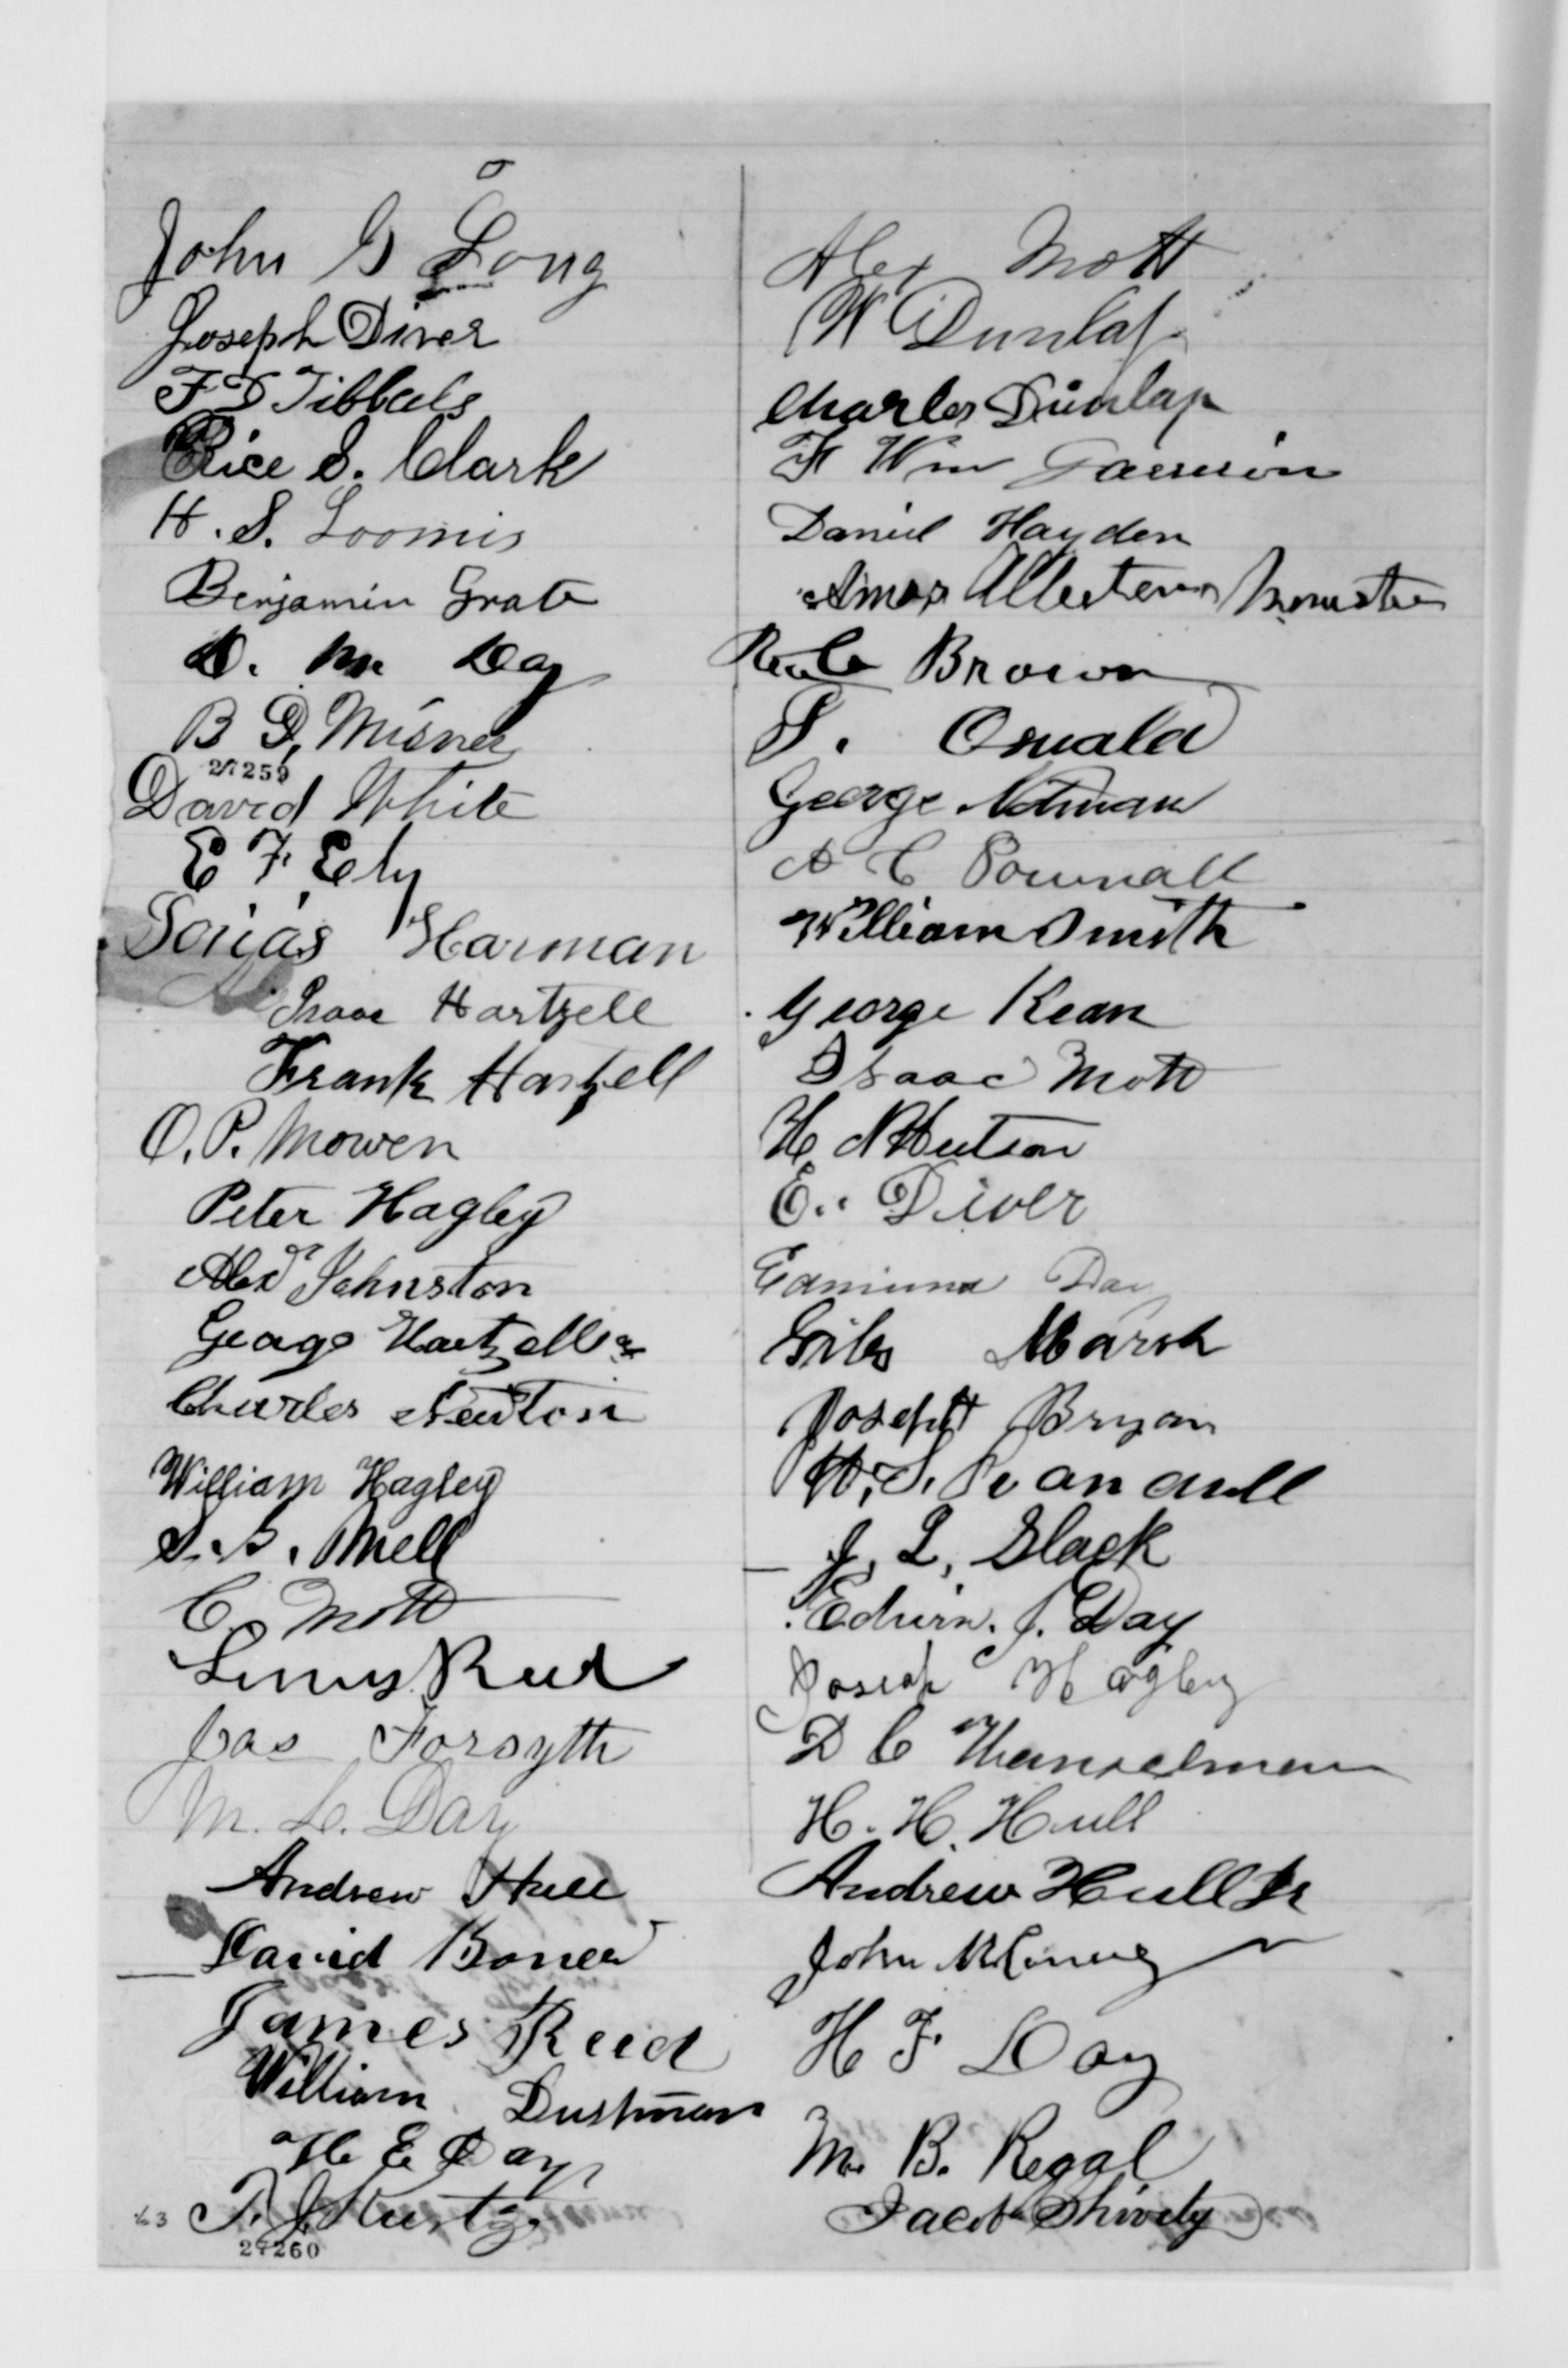 John G Long
Joseph Diver
F D Tibbals
Rice S. Clark
H. S. Loomis
Benjamin Grate
D. M Day
B D, Misner
27259
David White
E F Ely
Tobias Harman
Isaac Hartzell
Frank Hartzell
O. P. Mowen
Peter Hagley
Alex Johnston
George Hartzell
Charles Newton
William Hagley
Mell
C. Mott
Reed
Jas Forsyth
M. L. Day
Andrew Hull
David Boner
James Reed
William Dustman
H E Day
T. J. Kurtz
63
27260
Alex Mott
W Dunlap
Charles Dunlap
F Wm
Daniel Hayden
Amos
Brown
S. Oswald
George Notman
A C Pownall
William Smith
George Kean
Isaac Mott
H N Hutson
E. Diver
Edmund Day
Giles Marsh
Joseph Bryan
J. L. Slack
Edwin. J. Day
Josiah Hagley
D C Hanselman
H. H. Hull
Andrew Hull Jr
John
H F Day
M. B. Regal
Jacob Shively